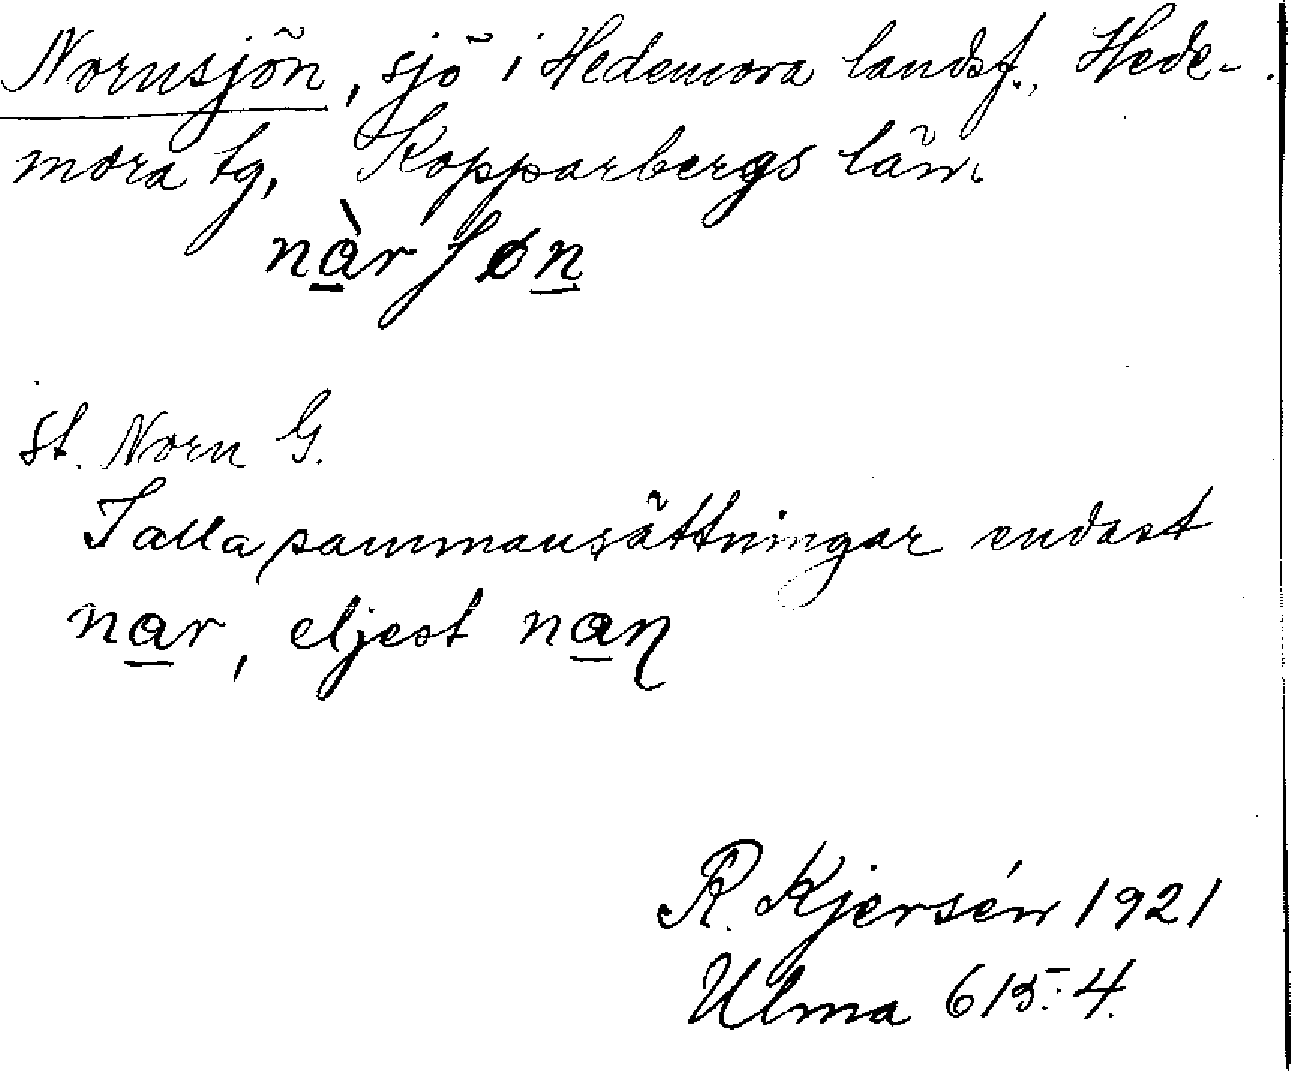 Nornsjön, sjö i Hedemora landsf., Hede-
mora tg, Kopparbergs län.
nàrʃøn
st. Norn G.
I alla sammansättningar endast
nar, eljest naɳ
R. Kjersén 1921
Ulma 615:4.